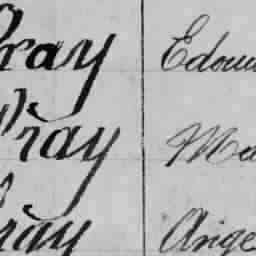 Pray Edou
Pray Ma
Pray Ange